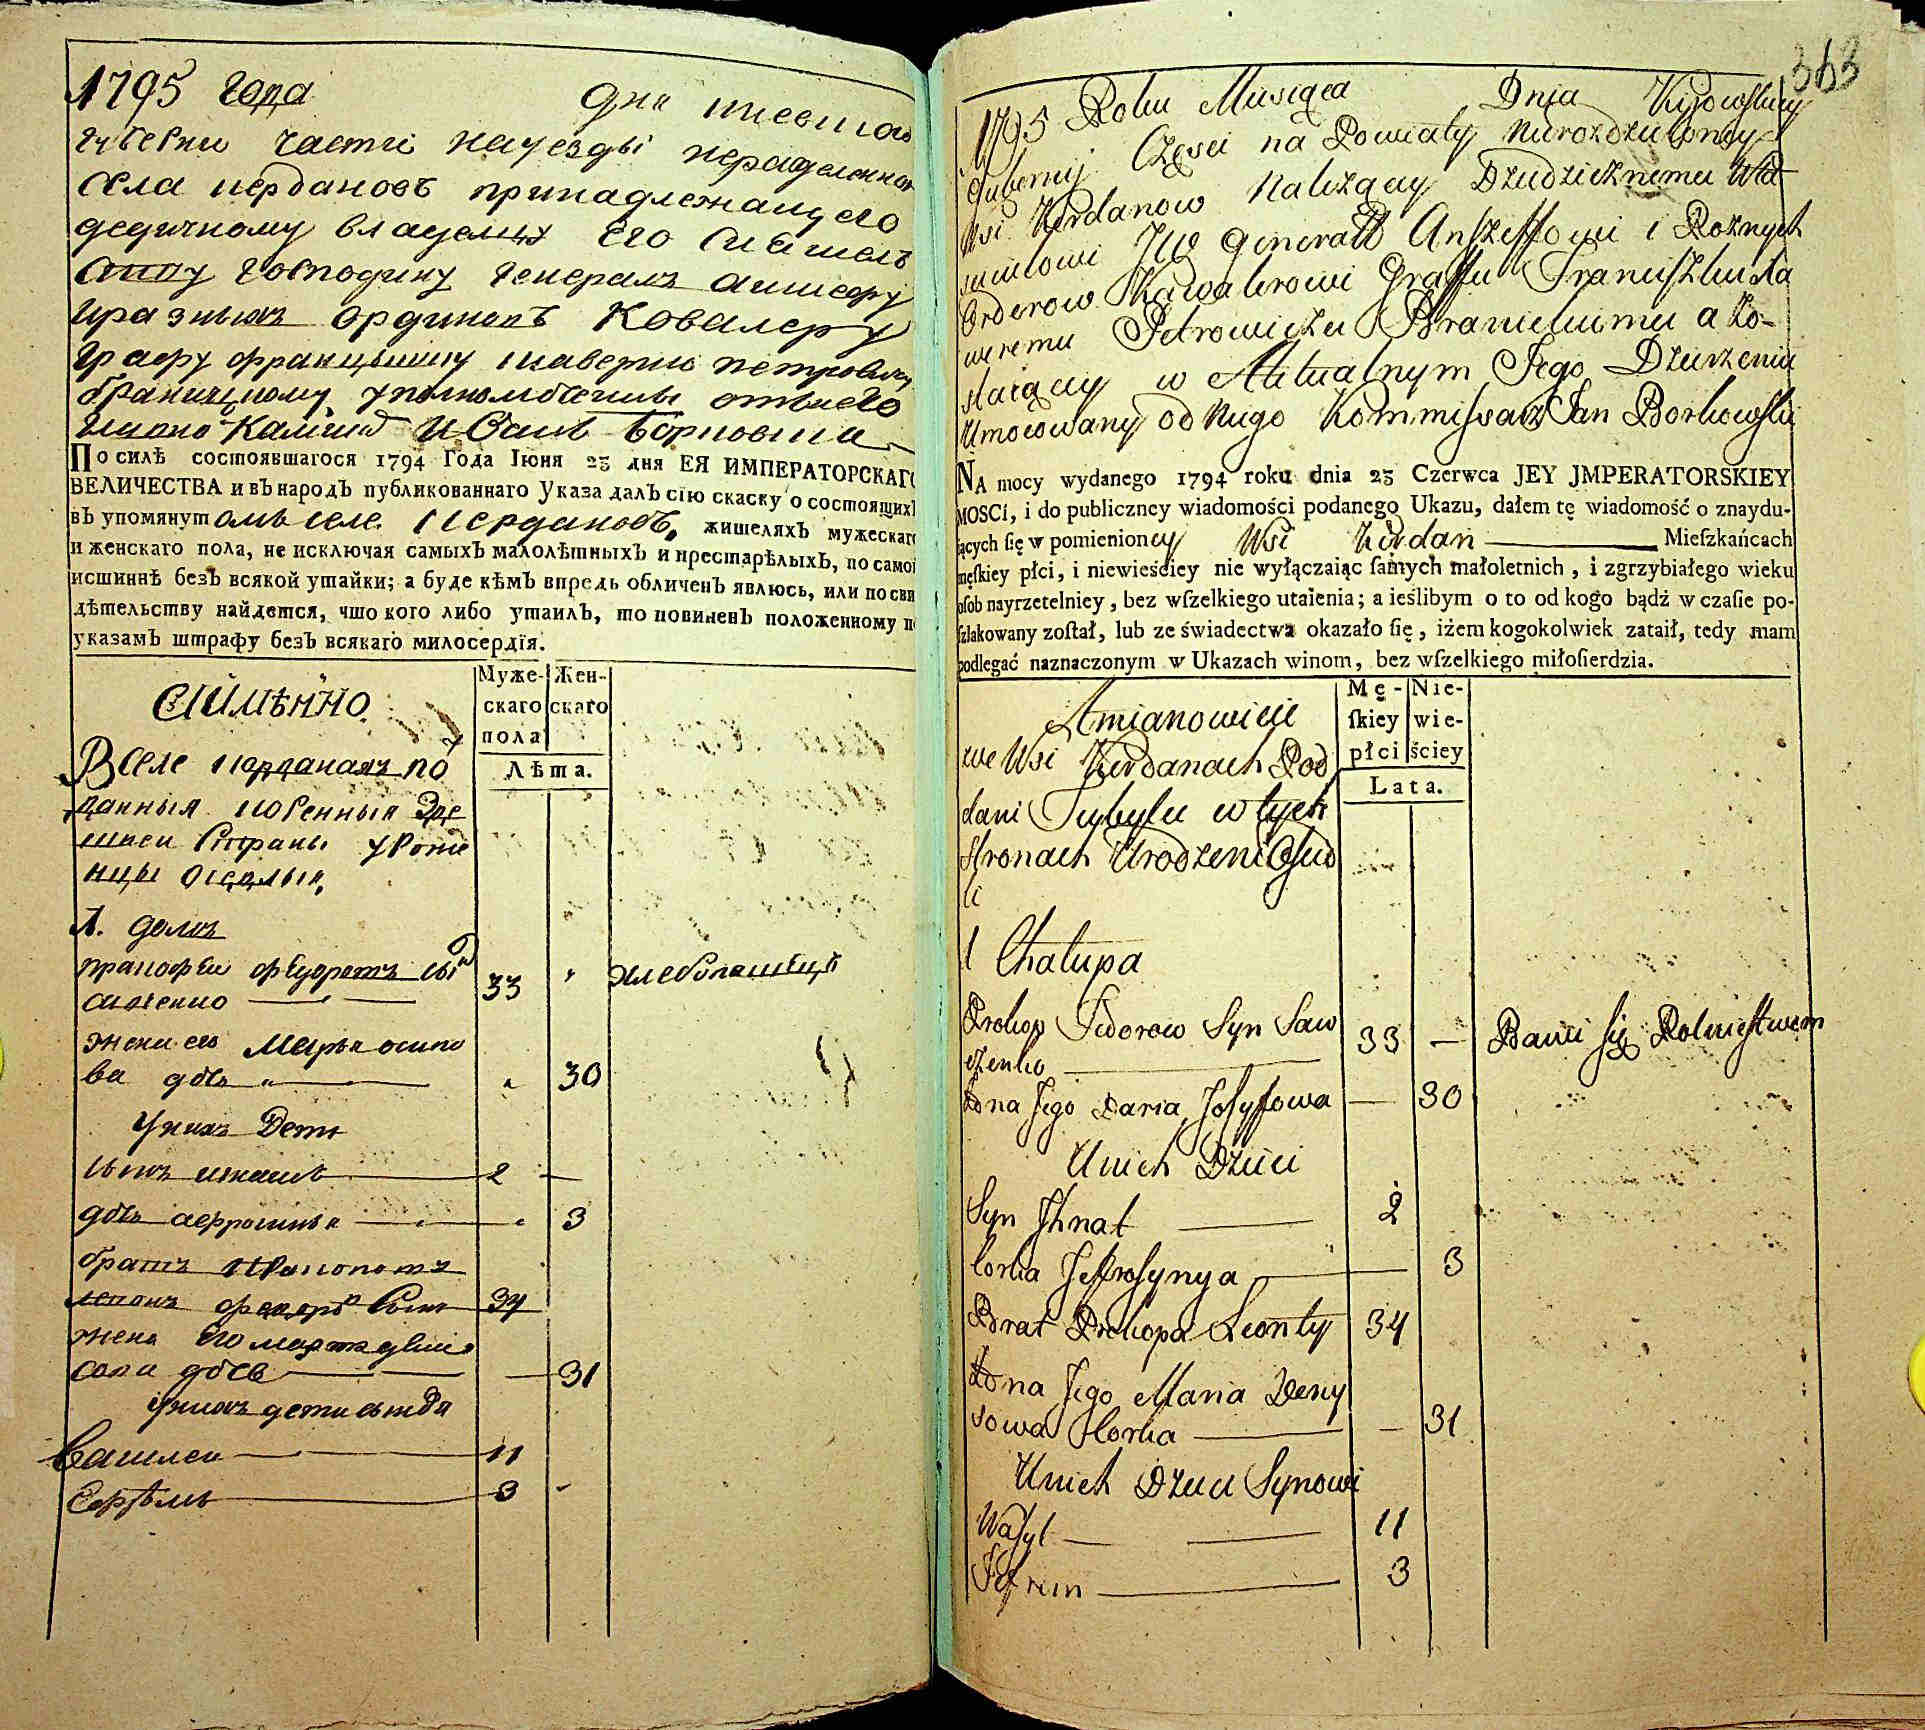 1795 года дня киевской
губернии части на уезды неразделенной
села кердановъ принадлежащего
дедичному владельцу его сиятель
ству господину генералъ аншефу
и разныхъ ординовъ Ковалеру
графу францышку ксаверию петровичу
браницкому уполномоченны отъ него
Иванъ Борковски
По силѣ состоявшагося 1794 Года Іюня 23 дня ЕЯ ИМПЕРАТОРСКАГО
ВЕЛИЧЕСТВА и въ народъ публикованнаго Указа далъ сію скаску о состоящихъ
въ упомянутомъ селе Кердановъ, жителяхъ мужескаго
и женскаго пола, не исключая самыхъ малолѣтныхъ и престарѣлыхъ, по самой
истиннѣ безъ всякой утайки; а буде кѣмъ впредь обличенъ явлюсь, или по сви
дѣтельству найдется, что кого либо утаилъ, то повиненъ положенному п
указамъ штрафу безъ всякаго милосердія.
Муже- Жен-
скаго скаго
пола
Лѣта.
имѣнно
В селе керданахъ по
данныя коренныя зде
шнеи стораны уроже
нцы оседлыя,
1. домъ
прокофеи федоровъ сынъ
савченко 33 хлебопашецъ
жена его Марья осипо
ва дочь 30
у нихъ Дети
сынъ игнатъ 2
дочь аефросинья 3
братъ прокопотъ
леонъ федоровъ сынъ 34
жена его марья дени
сова дочь 31
у нихъ дети сыновя
Василеи 11
Ефремъ 3
363
1795 Roku Miesiąca Dnia Kijowskiey
Gubernij Części na Powiaty nierozdzieloney
Wsi Kirdanow należący Dziedzicznemu Wła
scicielowi JW Generall Anszeffowi i Rożnych
Orderow Kawalerowi Graffu Franciszku Xa
weremu Petrowiczu Branickiemu a Zo-
staiący w Aktualnym Jego Dzierzeniu
Umocowany od niego Kommissarz Jan Borkowski
NA mocy wydanego 1794 roku dnia 23 Czerwca JEY JMPERATORSKIEY
MOSCI, i do publiczney wiadomości podanego Ukazu, dałem tę wiadomość o znaydu-
iących się w pomienioney Wsi Kirdan Mieſzkańcach
męſkiey płci, i niewieściey nie wyłączaiąc ſamych małoletnich, i zgrzybiałego wieku
oſob nayrzetelniey, bez wſzelkiego utaienia; a ieślibym o to od kogo bądź w czaſie po-
ſzlakowany zoſtał, lub ze świadectwa okazało ſię, iżem kogokolwiek zataił, tedy mam
podlegać naznaczonym w Ukazach winom, bez wſzelkiego miłoſierdzia.
Mę- Nie-
ſkiey wie-
płci ściey
Lata.
A mianowicie
we Wsi Kirdanach Pod
dani Tubylu w tych
stronach Urodzeni Osied
li
1 Chałupa
Prokop Fedorow Syn Saw
czenko 33 Bawi się Rolnictwem
Żona Jego Daria Josyfowa 30
U nich Dzieci
Syn Ihnat 2
Corka Jefrosynya 3
Brat Prokopa Leonty 34
Żona Jego Maria Deny
sowa Corka 31
U nich Dzieci Synowi
Wasyl 11
Jefrim 3